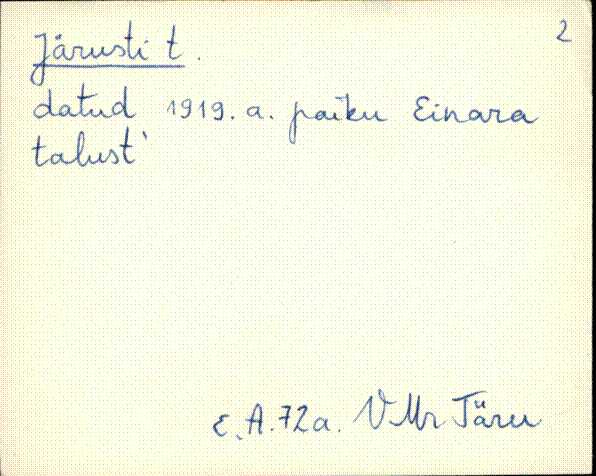 2
Järusti t.
datud 1919. a. paiku Einara
talust'
E.A.72a. VMr Täru